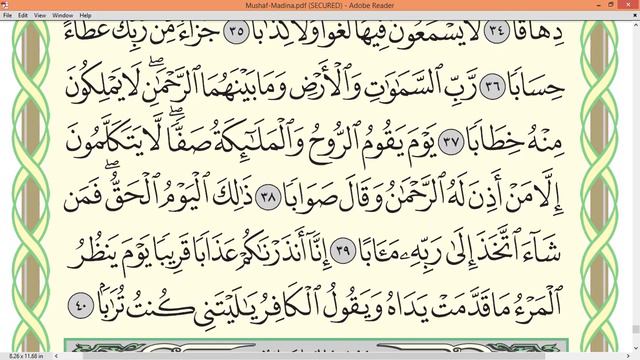 Mushaf-Madina.pdf (SECURED) - Adobe Reader
File Edit View Window Help
دِهَاقًا ٣٤ لَّا يَسْمَعُونَ فِيهَا لَغْوًا وَلَا كِذَّٰبًا ٣٥ جَزَآءً مِّن رَّبِّكَ عَطَآءً
حِسَابًا ٣٦ رَّبِّ ٱلسَّمَٰوَٰتِ وَٱلْأَرْضِ وَمَا بَيْنَهُمَا ٱلرَّحْمَٰنِ ۖ لَا يَمْلِكُونَ
مِنْهُ خِطَابًا ٣٧ يَوْمَ يَقُومُ ٱلرُّوحُ وَٱلْمَلَٰٓئِكَةُ صَفًّا ۖ لَّا يَتَكَلَّمُونَ
إِلَّا مَنْ أَذِنَ لَهُ ٱلرَّحْمَٰنُ وَقَالَ صَوَابًا ٣٨ ذَٰلِكَ ٱلْيَوْمُ ٱلْحَقُّ ۖ فَمَن
شَآءَ ٱتَّخَذَ إِلَىٰ رَبِّهِۦ مَـَٔابًا ٣٩ إِنَّآ أَنذَرْنَٰكُمْ عَذَابًا قَرِيبًا يَوْمَ يَنظُرُ
ٱلْمَرْءُ مَا قَدَّمَتْ يَدَاهُ وَيَقُولُ ٱلْكَافِرُ يَٰلَيْتَنِى كُنتُ تُرَٰبًۢا ٤٠
8.26 x 11.68 in